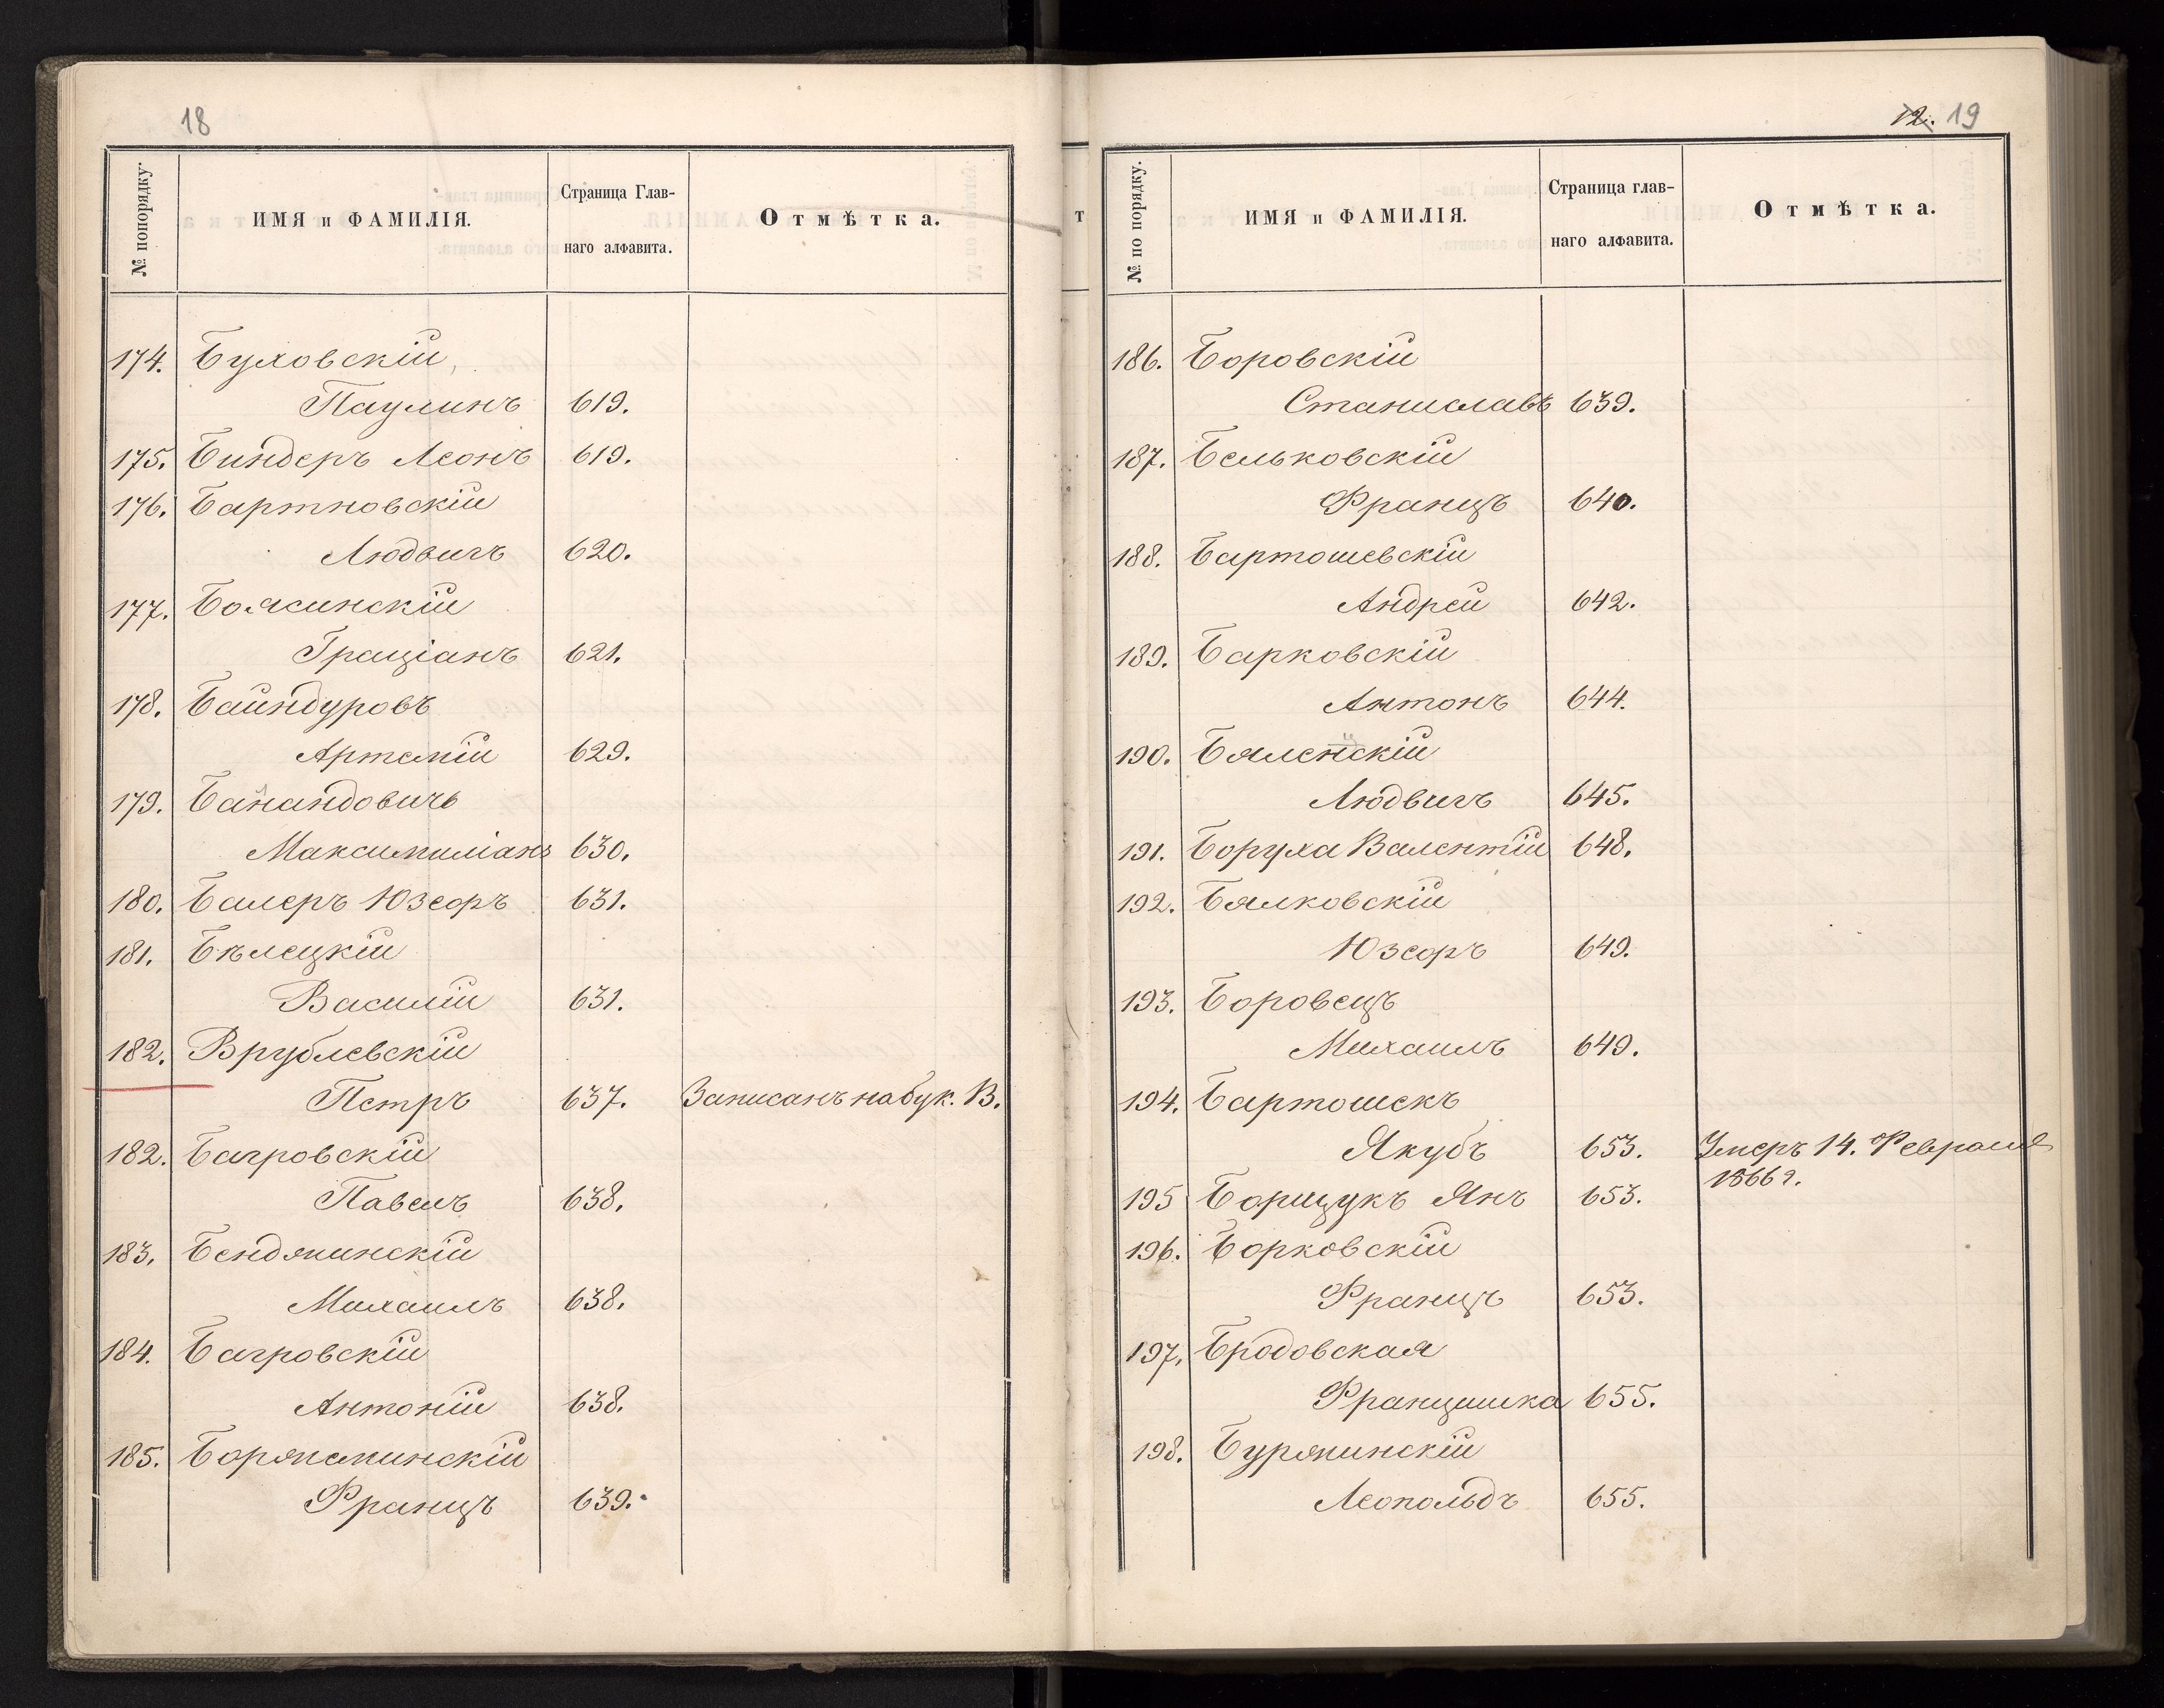 18
№ попорядку.
ИМЯ и ФАМИЛІЯ.
Страница Глав-
наго алфавита.
Отмѣтка.
174. Буховскій,
Паулинъ 619.
175. Биндеръ Леонъ 619.
176. Бартновскій
Людвигъ 620.
177. Боясинскій
Граціанъ 621.
178. Байндуровъ
Артемій 629.
179. Банандовичь
Максимиліанъ 630.
180. Балеръ Юзефъ 631.
181. Бѣлецкій
Василій 631.
182. Врублевскій
Петръ 637. Записанъ на бук. В.
182. Багровскій
Павелъ 638.
183. Бенджинскій
Михаилъ 638.
184. Багровскій
Антоній 638.
185. Боржеминскій
Францъ 639.
12. 19
№ по порядку.
ИМЯ и ФАМИЛІЯ.
Страница глав-
наго алфавита.
Отмѣтка.
186. Боровскій
Станиславъ 639.
187. Бельковскій
Францъ 640.
188. Бартошевскій
Андрей 642.
189. Барковскій
Антонъ 644.
190. Бяленскій
Людвигъ 645.
191. Боруха Валентій 648.
192. Бялковскій
Юзефъ 649.
193. Боровецъ
Михаилъ 649.
194. Бартошекъ
Якубъ 653. Умеръ 14. Февраля
1866 г.
195 Борщукъ Янъ 653.
196. Борковскій
Францъ 653.
197. Бродовская
Францишка 655.
198. Буржинскій
Леопольдъ 655.